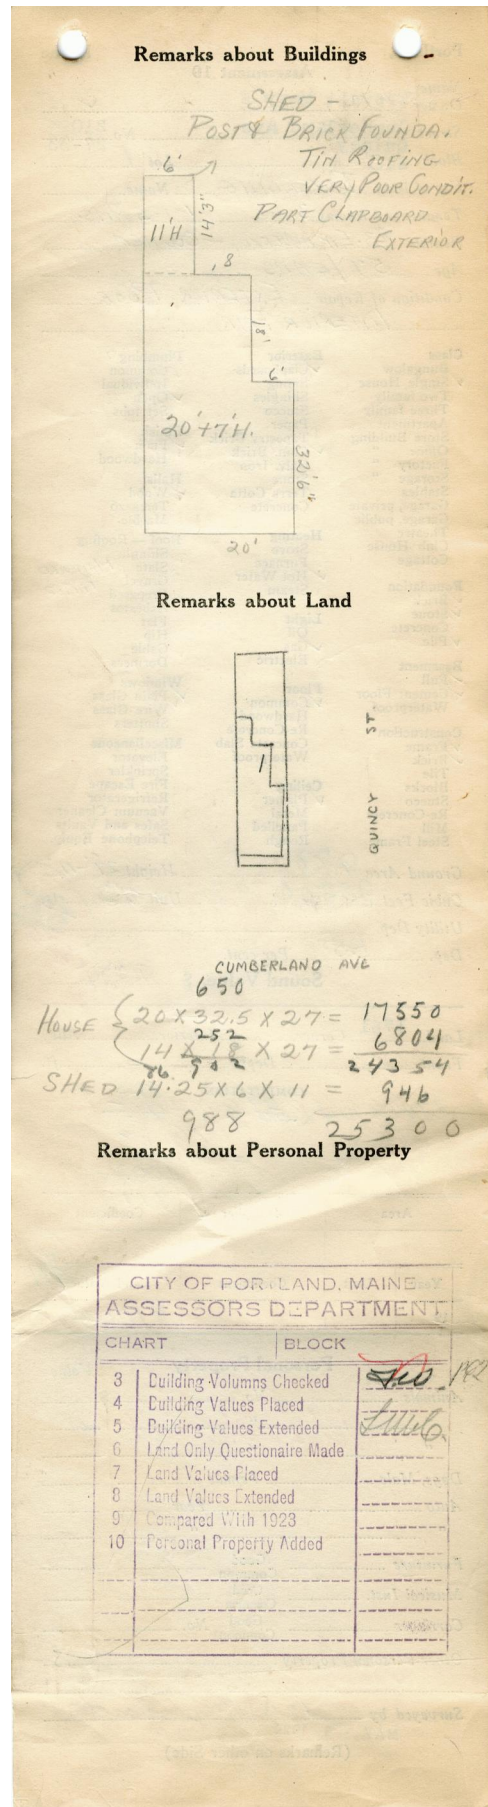 Remarks about Buildings
SHED -
POST & BRICK FOUNDA.
TIN ROOFING
VERY POOR CONDIT.
PART CLAPBOARD
EXTERIOR
6'
11'H
14'3"
8
18'
6'
20'+7'H.
32'6"
20'
Remarks about Land
1
QUINCY ST.
CUMBERLAND AVE
650
HOUSE { 20 X 32.5 X 27 = 17550
252
14 X 18 X 27 = 6804
86 902 24354
SHED 14.25 X 6 X 11 = 946
988 25300
Remarks about Personal Property
CITY OF PORTLAND, MAINE
ASSESSORS DEPARTMENT
CHART BLOCK
3 Building Volumns Checked
4 Building Values Placed
5 Building Values Extended
6 Land Only Questionaire Made
7 Land Values Placed
8 Land Values Extended
9 Compared With 1923
10 Personal Property Added